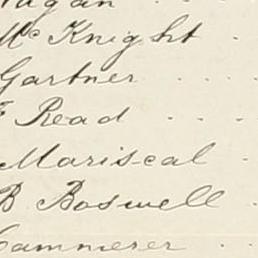 McKnight
Gartner
F Read
Mariscal
B Boswell
Cammerer